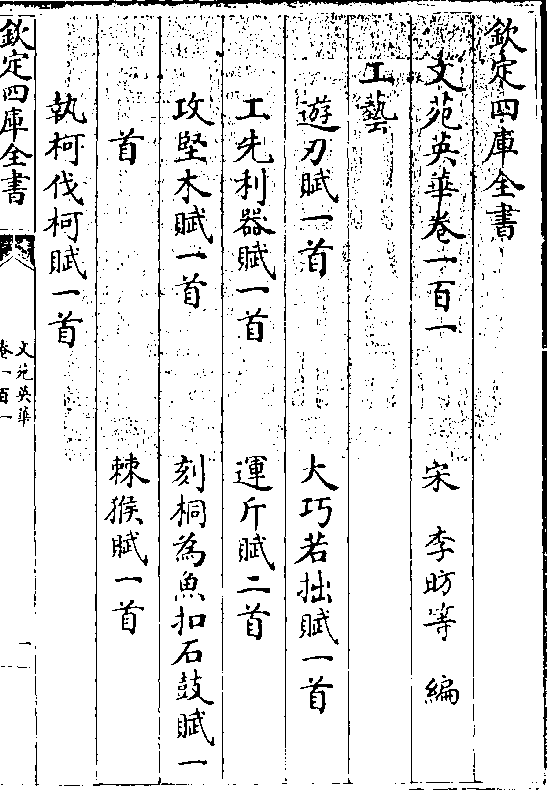 欽定四庫全書
文苑英華卷一百一 宋 李昉等 編
工藝
遊刃賦一首 大巧若拙賦一首
工先利器賦一首 運斤賦二首
攻堅木賦一首 刻桐為魚扣石鼓賦一
首 棘猴賦一首
執柯伐柯賦一首
欽定四庫全書
文苑英華
卷一百一
一